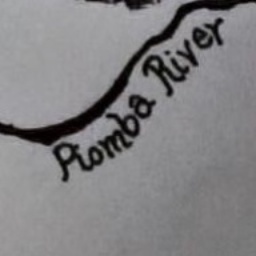 Piomba River